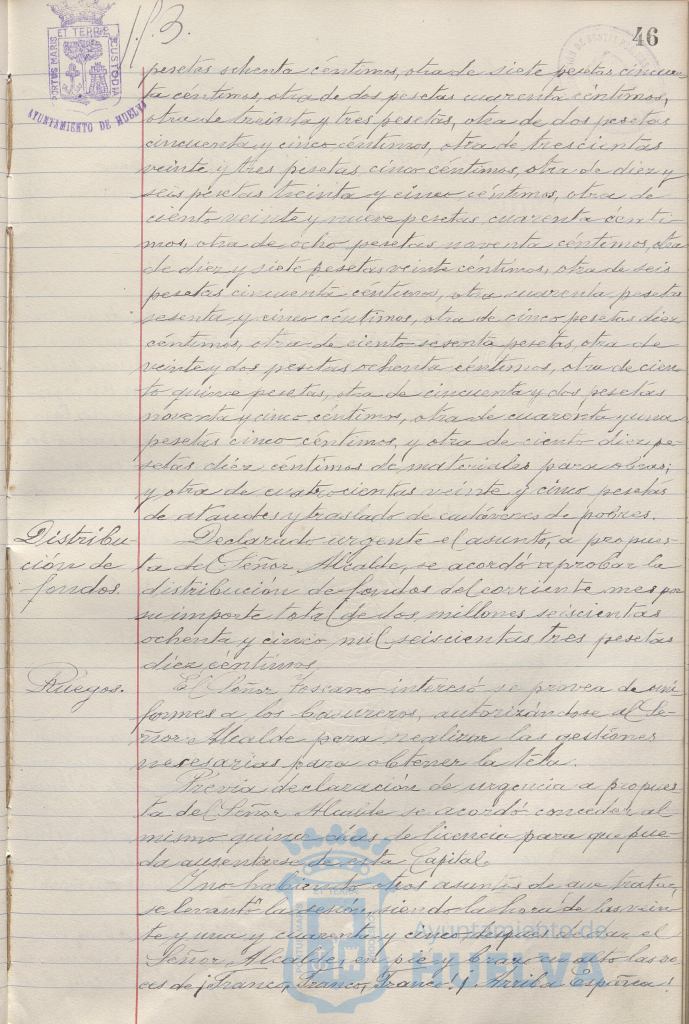 46
PORTUS MARIS ET TERRE CUSTODIA
AYUNTAMIENTO DE HUELVA
pesetas ochenta céntimos, otra de siete pesetas cincuen-
ta céntimos, otra de dos pesetas cuarenta céntimos,
otra de treinta y tres pesetas, otra de dos pesetas
cincuenta y cinco céntimos, otra de trescientas
veinte y tres pesetas cinco céntimos, otra de diez y
seis pesetas treinta y cinco céntimos, otra de
ciento veinte y nueve pesetas cuarenta cénti-
mos, otra de ocho pesetas noventa céntimos, otra
de diez y siete pesetas veinte céntimos, otra de seis
pesetas cincuenta céntimos, otra cuarenta pesetas
sesenta y cinco céntimos, otra de cinco pesetas diez
céntimos, otra de ciento sesenta pesetas, otra de
veinte y dos pesetas ochenta céntimos, otra de cien-
to quince pesetas, otra de cincuenta y dos pesetas
noventa y cinco céntimos, otra de cuarenta y una
pesetas cinco céntimos, y otra de ciento diez pe-
setas diez céntimos de materiales para obras;
y otra de cuatrocientas veinte y cinco pesetas
de ataudes y traslado de cadáveres de pobres.
Distribu-
ción de
fondos.
Declarado urgente el asunto, a propues-
ta del Señor Alcalde, se acordó aprobar la
distribución de fondos del corriente mes por
su importe total de dos millones seiscientas
ochenta y cinco mil seiscientas tres pesetas
diez céntimos.
Ruegos.
El Señor Toscano interesó se provea de uni-
formes a los basureros, autorizándose al Se-
ñor Alcalde para realizar las gestiones
necesarias para obtener la tela.
Previa declaración de urgencia a propues-
ta del Señor Alcalde se acordó conceder al
mismo quince días de licencia para que pue-
da ausentarse de esta Capital.
Y no habiendo otros asuntos de que tratar,
se levantó la sesión, siendo la hora de las vein-
te y una y cuarenta y cinco, después de dar el
Señor Alcalde, en pie y brazo en alto las vo-
ces de ¡Franco, Franco, Franco! ¡Arriba España!
Ayuntamiento de
HUELVA